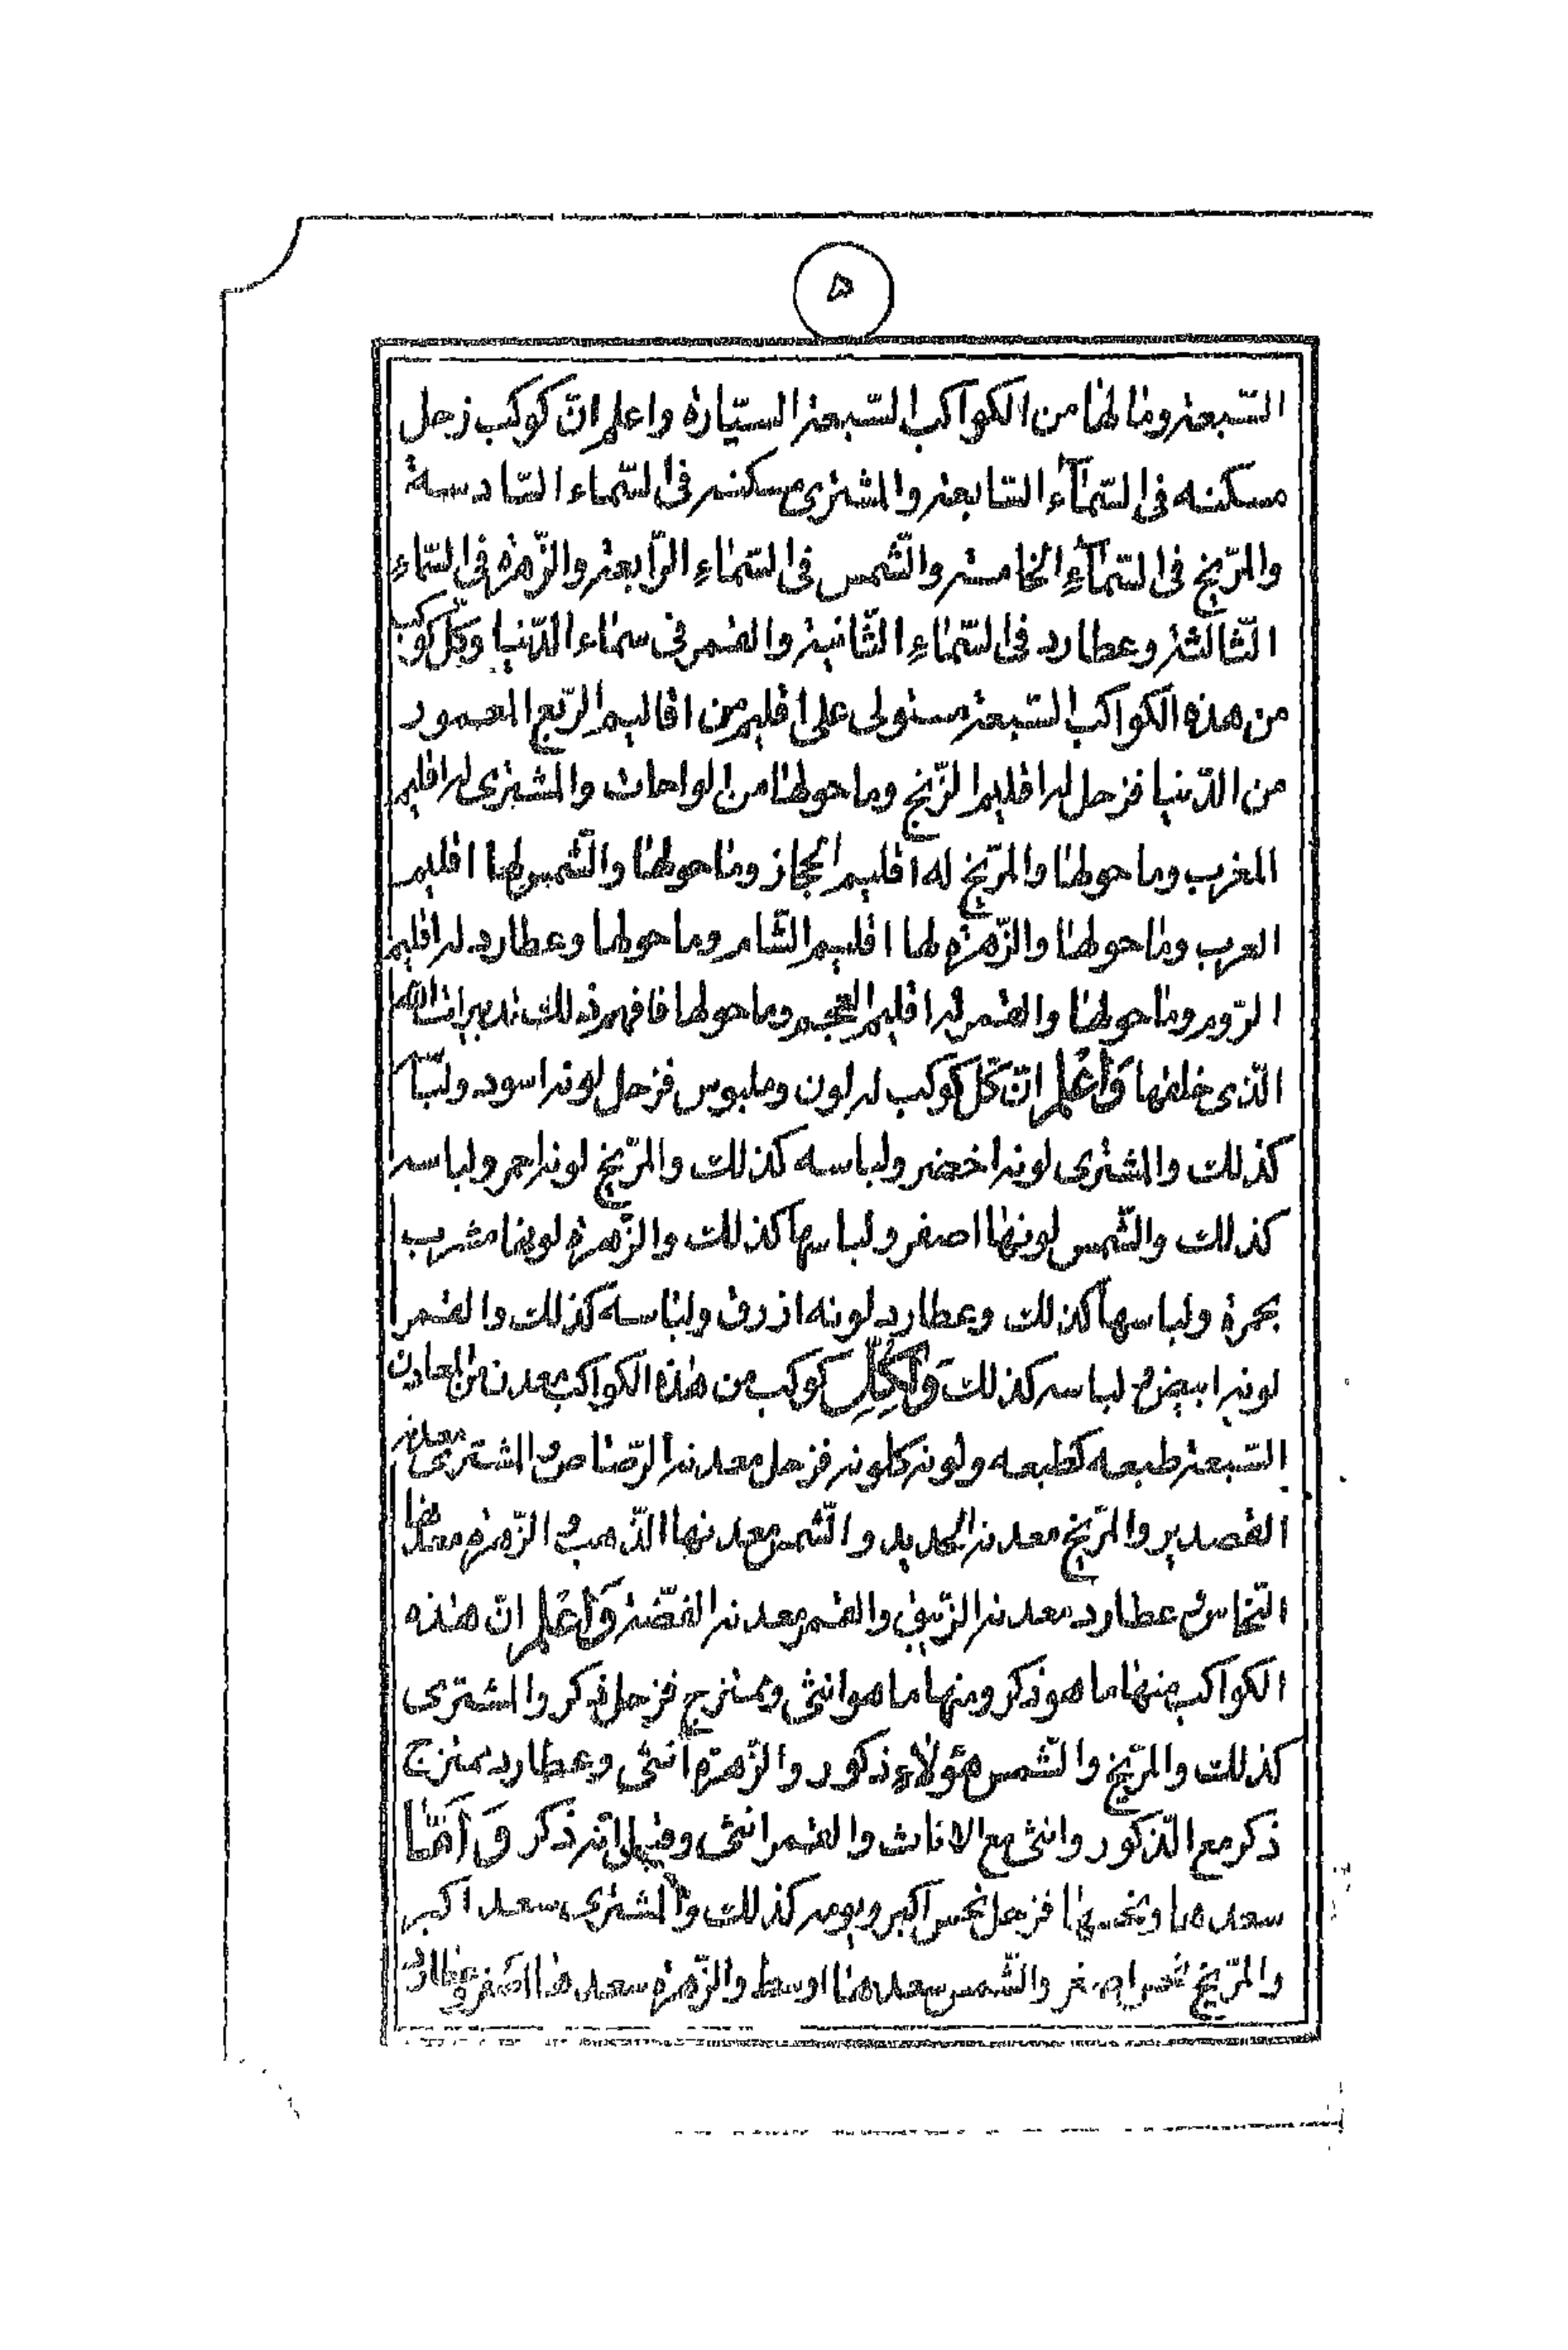 ۵
السّبعة وما لها من الكواكب السّبعة السيّارة واعلم انّ كوكب زحل
مسكنه فى السّمآء السّابعة والمشترى مسكنه فى السّماء السّادسة
والمرّيخ فى السّمآءِ الخامسة والشّمس فى السّماءِ الرّابعة والزّهرة فى السّماءِ
الثّالثة وعطارد فى السّماءِ الثّانية والقمر فى سماء الدّنيا وكلّ كوكب
من هذه الكواكب السّبعة مستولى على اقليم من اقاليم الرّبع المعمور
من الدّنيا فزحل له اقليم الزّنج وما حولها من الواحات والمشترى له اقليم
المغرب وما حولها والمرّيخ له اقليم الحجاز وما حولها والشّمس لها اقليم
العرب وما حولها والزّهرة لها اقليم الشّام وما حولها وعطارد له اقليم
الرّوم وما حولها والقمر له اقليم العجم وما حولها فافهم ذلك تدبير الله
الّذى خلقها وَاعْلم انّ كلّ كوكب له لون وملبوس فزحل لونه اسود ولباسه
كذلك والمشترى لونه اخضر ولباسه كذلك والمرّيخ لونه احمر ولباسه
كذلك والشّمس لونها اصفر ولباسها كذلك والزّهرة لونها مشرب
بحمرة ولباسها كذلك وعطارد لونه ازرق ولباسه كذلك والقمر
لونه ابيض و لباسه كذلك وَلِكُلِّ كوكب من هذه الكواكب معدن من المعادن
السّبعة طبعه كطبعه ولونه كلونه فزحل معدنه الرّصاص و المشترى معدنه
القصدير والمرّيخ معدنه الحديد والشّمس معدنها الذّهب و الزّهرة معدنها
النّحاس و عطارد معدنه الزّيبق والقمر معدنه الفضّة وَاعْلم انّ هذه
الكواكب منها ما هو ذكر ومنها ما هو انثى وممتزج فزحل ذكر والمشترى
كذلك والمرّيخ والشّمس هؤلاءِ ذكور والزّهرة انثى وعطارد ممتزج
ذكر مع الذّكور وانثى مع الاناث والقمر انثى وقيل انّه ذكر وَ اَمّا
سعدها ونحسها فزحل نحس اكبر ويومه كذلك والمشترى سعد اكبر
والمرّيخ نحس اصغر والشّمس سعدها اوسط والزّهرة سعدها اصغر وعطارد